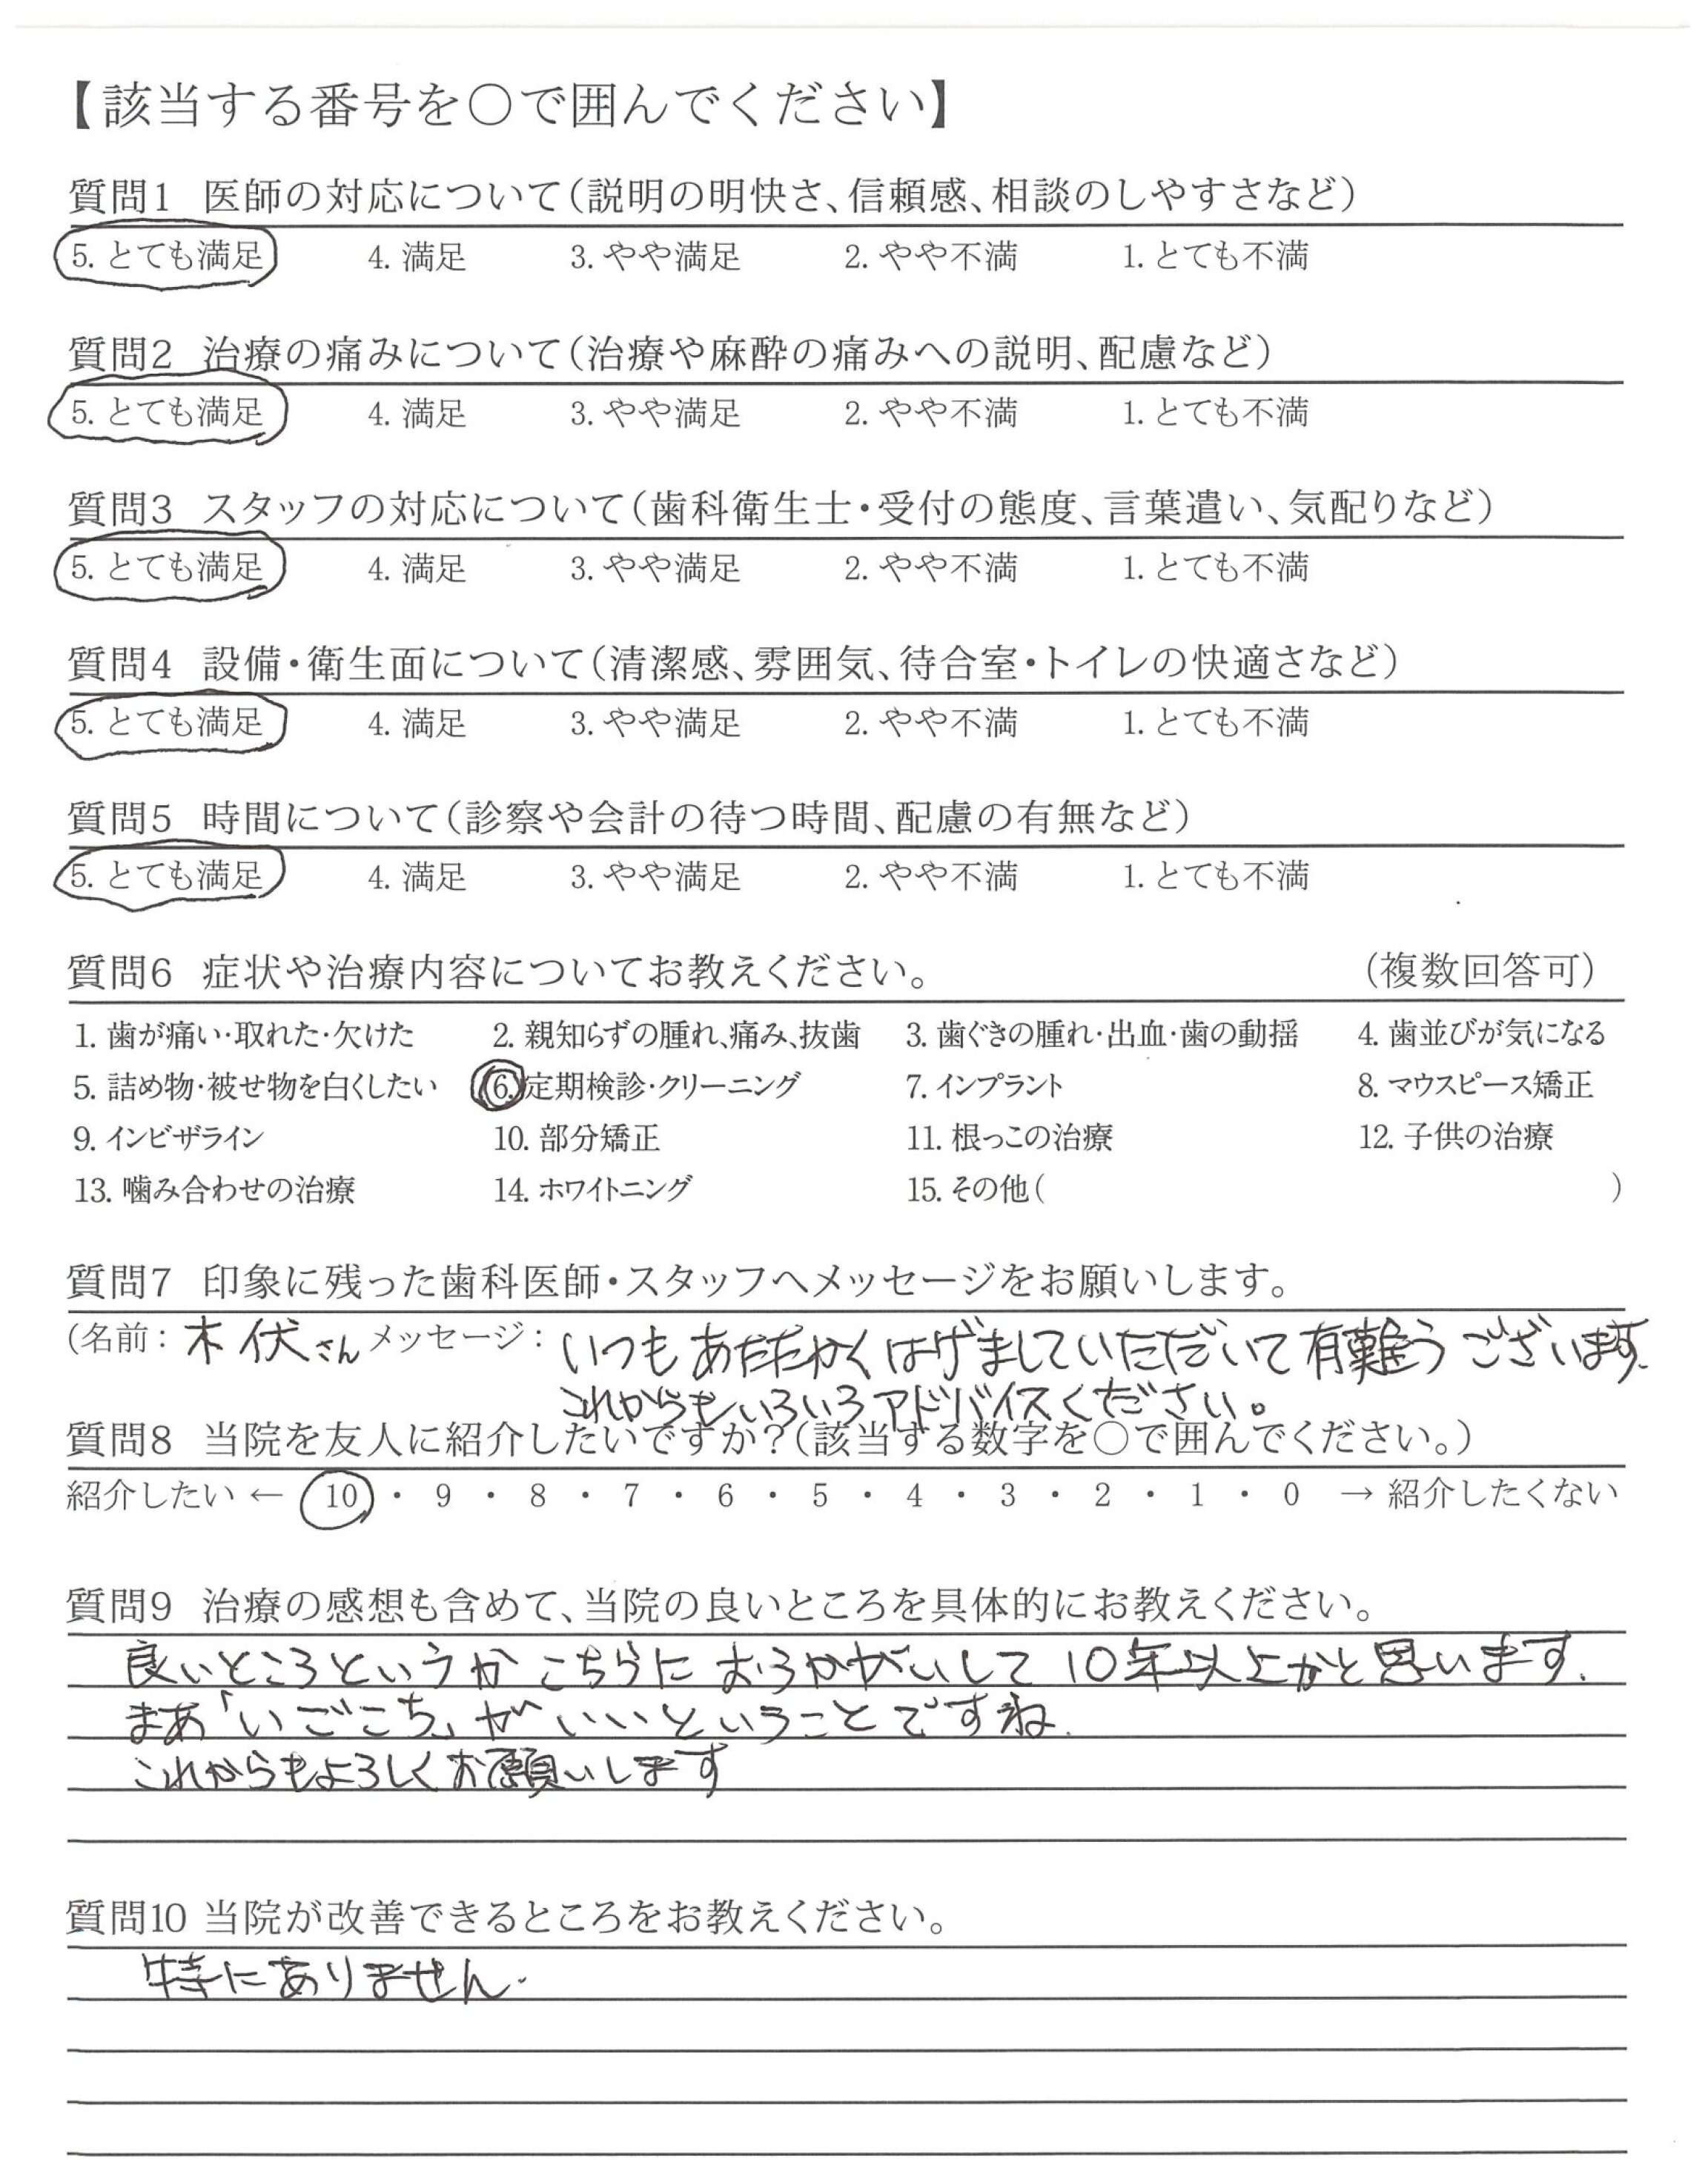 【該当する番号を○で囲んでください】
質問1 医師の対応について(説明の明快さ、信頼感、相談のしやすさなど)
5. とても満足 4. 満足 3. やや満足 2. やや不満 1. とても不満
質問2 治療の痛みについて(治療や麻酔の痛みへの説明、配慮など)
5. とても満足 4. 満足 3. やや満足 2. やや不満 1. とても不満
質問3 スタッフの対応について(歯科衛生士・受付の態度、言葉遣い、気配りなど)
5. とても満足 4. 満足 3. やや満足 2. やや不満 1. とても不満
質問4 設備・衛生面について(清潔感、雰囲気、待合室・トイレの快適さなど)
5. とても満足 4. 満足 3. やや満足 2. やや不満 1. とても不満
質問5 時間について(診察や会計の待つ時間、配慮の有無など)
5. とても満足 4. 満足 3. やや満足 2. やや不満 1. とても不満
質問6 症状や治療内容についてお教えください。 (複数回答可)
1. 歯が痛い・取れた・欠けた 2. 親知らずの腫れ、痛み、抜歯 3. 歯ぐきの腫れ・出血・歯の動揺 4. 歯並びが気になる
5. 詰め物・被せ物を白くしたい 6. 定期検診・クリーニング 7. インプラント 8. マウスピース矯正
9. インビザライン 10. 部分矯正 11. 根っこの治療 12. 子供の治療
13. 噛み合わせの治療 14. ホワイトニング 15. その他( )
質問7 印象に残った歯科医師・スタッフへメッセージをお願いします。
(名前: 木伏さん メッセージ: いつもあたたかくはげましていただいて有難うございます.
これからもいろいろアドバイスください。
質問8 当院を友人に紹介したいですか?(該当する数字を○で囲んでください。)
紹介したい ← 10 ・ 9 ・ 8 ・ 7 ・ 6 ・ 5 ・ 4 ・ 3 ・ 2 ・ 1 ・ 0 → 紹介したくない
質問9 治療の感想も含めて、当院の良いところを具体的にお教えください。
良いところというか こちらに おうかがいして 10年以上かと思います.
まあ「いごこち」が いいということですね.
これからもよろしくお願いします
質問10 当院が改善できるところをお教えください。
特にありません.